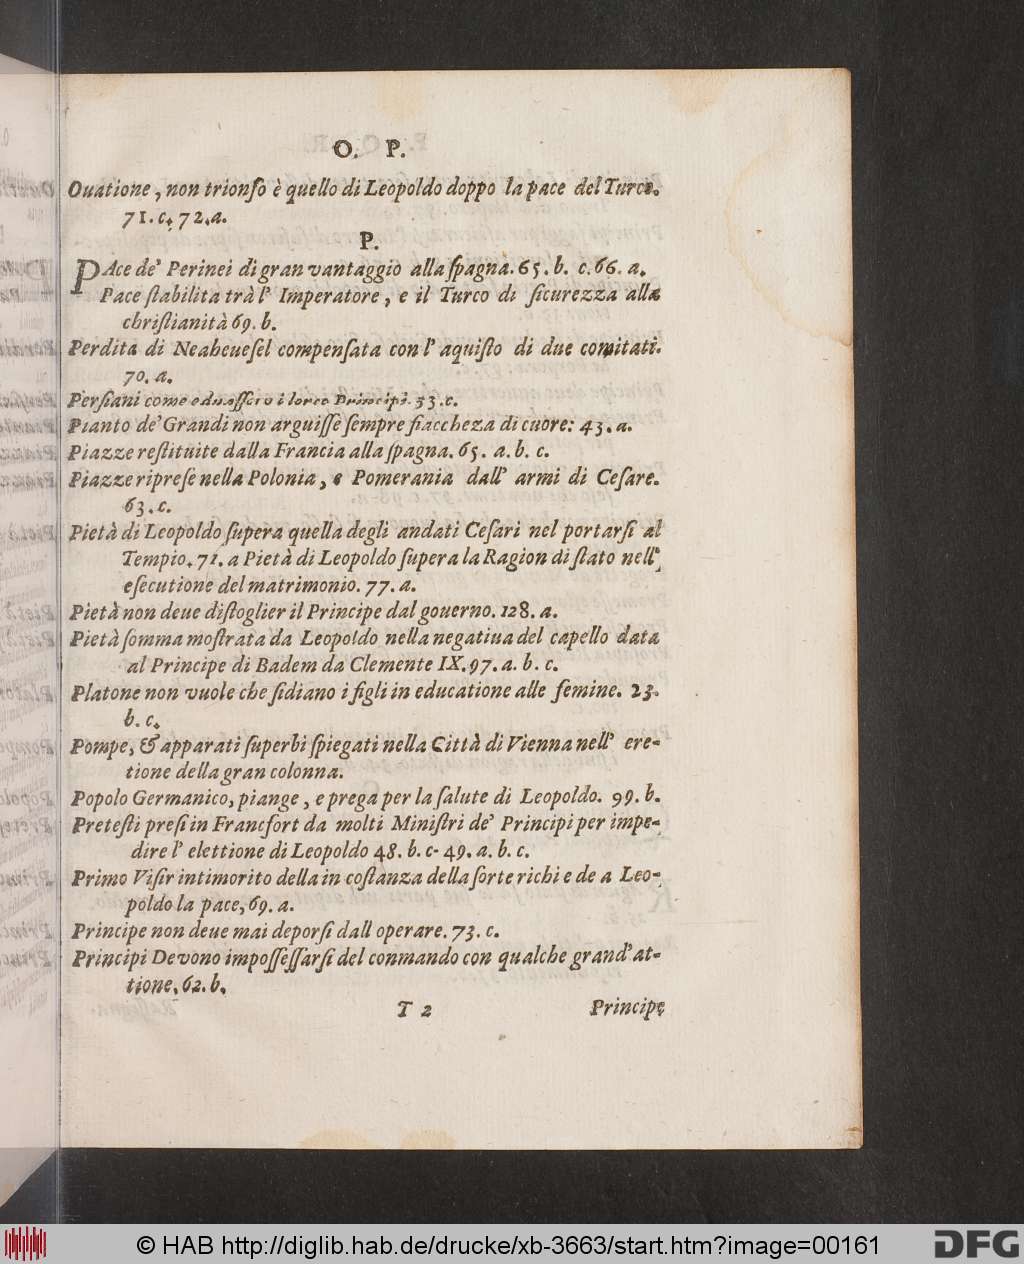 O. P.
Ouatione, non trionfo è quello di Leopoldo doppo la pace del Turco.
71. c. 72. a.
P.
PAce de' Perinei di gran vantaggio alla ſpagna. 65. b. c. 66. a.
Pace ſtabilita trà l' Imperatore, e il Turco di ſicurezza alla
chriſtianità 69. b.
Perdita di Neaheueſel compenſata con l' aquiſto di due comitati.
70. a.
Perſiani come i loro Principi. 33. c.
Pianto de' Grandi non arguiſſe ſempre fiaccheza di cuore: 43. a.
Piazze reſtituite dalla Francia alla ſpagna. 65. a. b. c.
Piazze ripreſe nella Polonia, e Pomerania dall' armi di Ceſare.
63. c.
Pietà di Leopoldo ſupera quella degli andati Ceſari nel portarſi al
Tempio. 71. a Pietà di Leopoldo ſupera la Ragion di ſtato nell'
eſecutione del matrimonio. 77. a.
Pietà non deue diſtoglier il Principe dal gouerno. 128. a.
Pietà ſomma moſtrata da Leopoldo nella negatiua del capello data
al Principe di Badem da Clemente IX. 97. a. b. c.
Platone non vuole che ſidiano i figli in educatione alle femine. 23.
b. c.
Pompe, & apparati ſuperbi ſpiegati nella Città di Vienna nell' ere-
tione della gran colonna.
Popolo Germanico, piange, e prega per la ſalute di Leopoldo. 99. b.
Preteſti preſi in Francfort da molti Miniſtri de' Principi per impe-
dire l' elettione di Leopoldo 48. b. c- 49. a. b. c.
Primo Viſir intimorito della in coſtanza della ſorte richi e de a Leo-
poldo la pace, 69. a.
Principe non deue mai deporſi dall operare. 73. c.
Principi Devono impoſſeſſarſi del conmando con qualche grand' at-
tione. 62. b.
T 2 Principe
© HAB http://diglib.hab.de/drucke/xb-3663/start.htm?image=00161 DFG